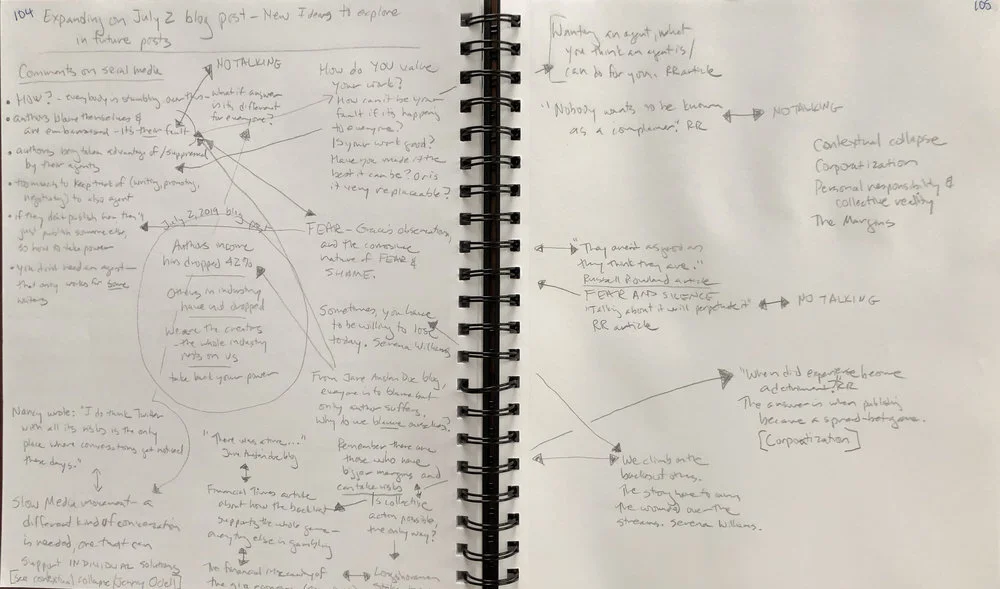 104 Expanding on July 2 blog post - New Ideas to explore
in future posts
Comments on social media
NO TALKING
• HOW? - everybody is stumbling over this - what if answer
is its different
for everyone?
• authors blame themselves &
are embarrassed - its their fault
• authors being taken advantage of / suppressed
by their agents
• too much to keep track of (writing, promoting,
negotiating) to also agent
• if they don't publish you they'll
just publish someone else,
so how to take power
• you don't need an agent -
that only works for some
writers
How do YOU value
your work?
How can it be your
fault if its happening
to everyone?
Is your work good?
Have you made it the
best it can be? Or is
it very replaceable?
July 2, 2019 blog post
Authors income
has dropped 42%
Others in industry
have not dropped
We are the creators
- the whole industry
rests on us
take back your power
FEAR - observation,
and the corrosive
nature of FEAR &
SHAME.
Sometimes, you have
to be willing to lose
today. Serena Williams
From Jane Austen Doe blog,
everyone is to blame but
only author suffers.
Why do we blame ourselves?
Nancy wrote: "I do think Twitter
with all its risks is the only
place where conversations get noticed
these days."
Slow Media movement - a
different kind of conversation
is needed, one that can
support INDIVIDUAL solutions
[see contextual collapse/Jenny Odell]
"There was a time..."
Jane Austen doe blog
Financial Times article
about how the backlist
supports the whole game -
everything else is gambling
The financial of
the gig economy
Remember there are
those who have
bigger margins and
can take risks
Is collective
action possible,
the only way?
Longshoreman
105
Wanting an agent, what
you think an agent is /
can do for you. RR article
"Nobody wants to be known
as a complainer." RR
NO TALKING
Contextual collapse
Corporatization
Personal responsibility &
collective reality
The Margins
"They aren't as good as
they think they are."
Russell Rowland article
FEAR AND SILENCE
"Talking about it will perpetuate it"
RR article
NO TALKING
"When did experience become
a detriment?" RR
The answer is when publishing
became a spreadsheet game.
[Corporatization]
We climb on the
backs of others.
The story here to carry
the wounded over the
streams. Serena Williams.